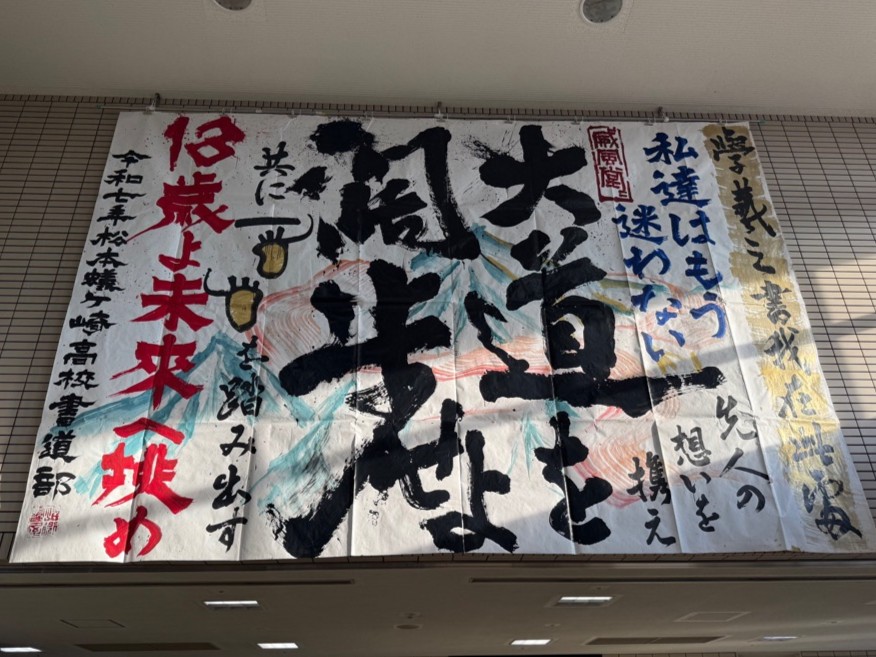 學羲之書
私達はもう
迷わない
先人の
想いを
携え
威風堂々
大道を
闊歩せよ
共に一
を踏み出す
18歳よ未來へ挑め
令和七年松本蟻ヶ崎高校書道部